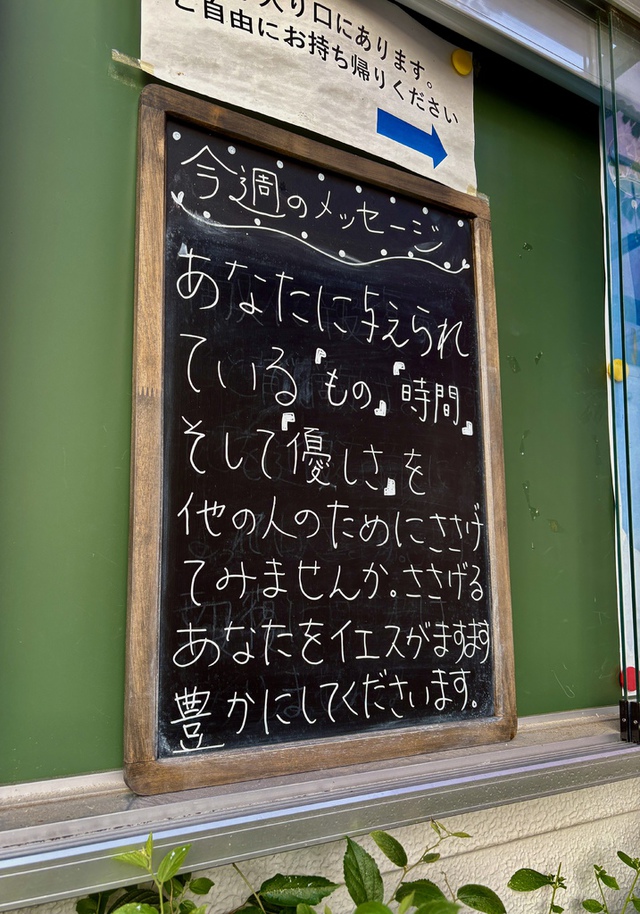 入り口にあります。
ご自由にお持ち帰りください
今週のメッセージ
あなたに与えられ
ている『もの』『時間』
そして『優しさ』を
他の人のためにささげ
てみませんか。ささげる
あなたをイエスがますます
豊かにしてくださいます。